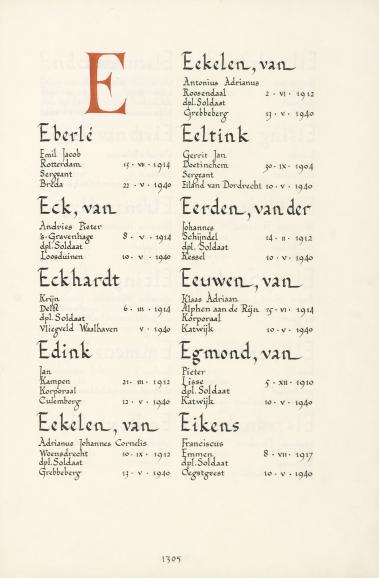 E
Eberlé
Emil Jacob
Rotterdam 15 · VII · 1914
Sergeant
Breda 22 · V · 1940
Eck, van
Andries Pieter
's-Gravenhage 8 · V · 1914
dpl. Soldaat
Loosduinen 10 · V · 1940
Eckhardt
Krijn
Delft 6 · III · 1914
dpl. Soldaat
Vliegveld Waalhaven V · 1940
Edink
Jan
Kampen 21 · III · 1912
Korporaal
Culemborg 12 · V · 1940
Eekelen, van
Adrianus Johannes Cornelis
Woensdrecht 10 · IX · 1912
dpl. Soldaat
Grebbeberg 13 · V · 1940
Eekelen, van
Antonius Adrianus
Roosendaal 2 · VI · 1912
dpl. Soldaat
Grebbeberg 13 · V · 1940
Eeltink
Gerrit Jan
Doetinchem 30 · IX · 1904
Sergeant
Eiland van Dordrecht 10 · V · 1940
Eerden, van der
Johannes
Schijndel 14 · II · 1912
dpl. Soldaat
Kessel 10 · V · 1940
Eeuwen, van
Klaas Adriaan
Alphen aan de Rijn 15 · VI · 1914
Korporaal
Katwijk 10 · V · 1940
Egmond, van
Pieter
Lisse 5 · XII · 1910
dpl. Soldaat
Katwijk 10 · V · 1940
Eikens
Franciscus
Emmen 8 · VII · 1917
dpl. Soldaat
Oegstgeest 10 · V · 1940
1305